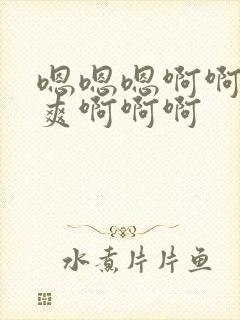 嗯嗯嗯啊啊
爽啊啊啊
水煮片片鱼